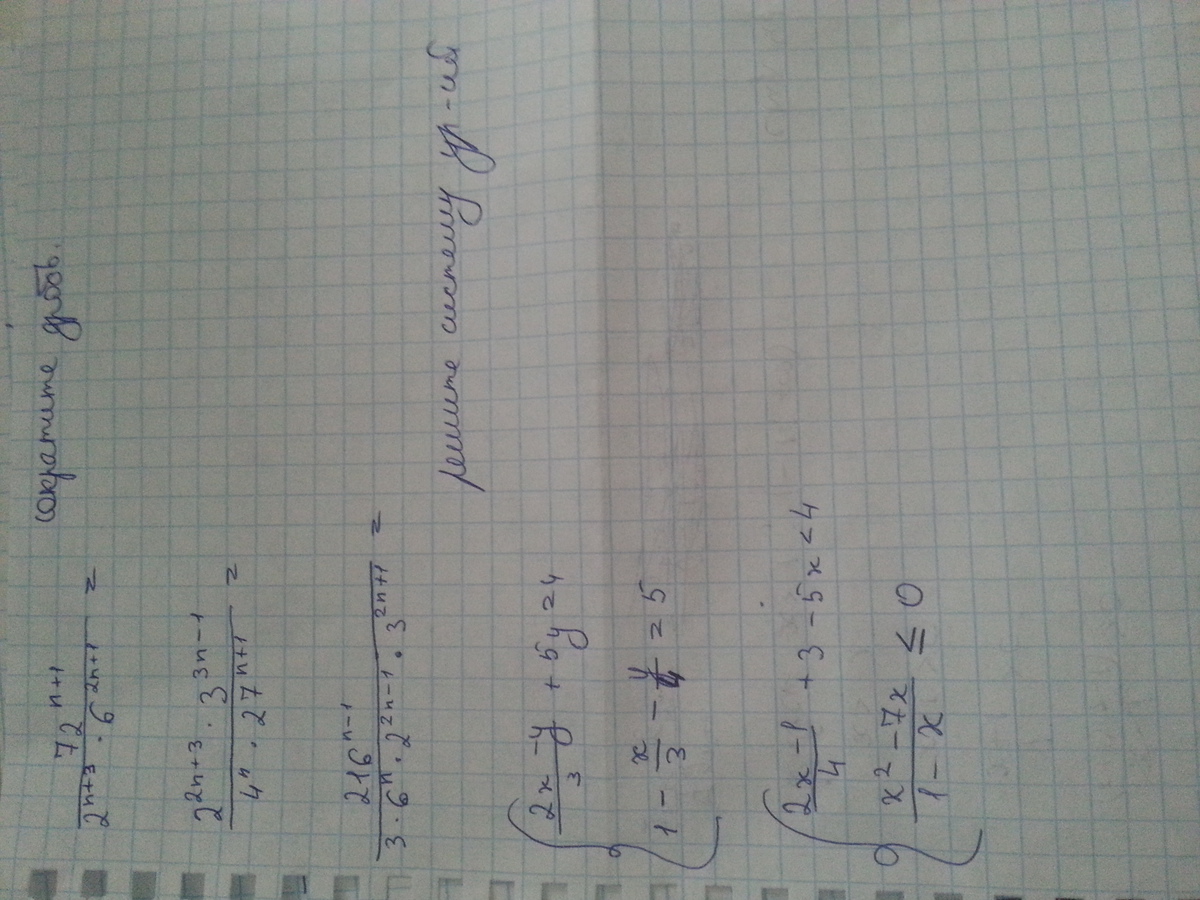 сократите дробь.
72^{n+1} / (2^{n+3} · 6^{2n+1}) =
(2^{2n+3} · 3^{3n-1}) / (4^n · 27^{n+1}) =
216^{n-1} / (3 · 6^n · 2^{2n-1} · 3^{2n+1}) =
решите систему ур-ий
{ (2x-y)/3 + 5y = 4
1 - x/3 - y/4 = 5
{ (2x-1)/4 + 3 - 5x < 4
(x^2 - 7x)/(1 - x) ≤ 0